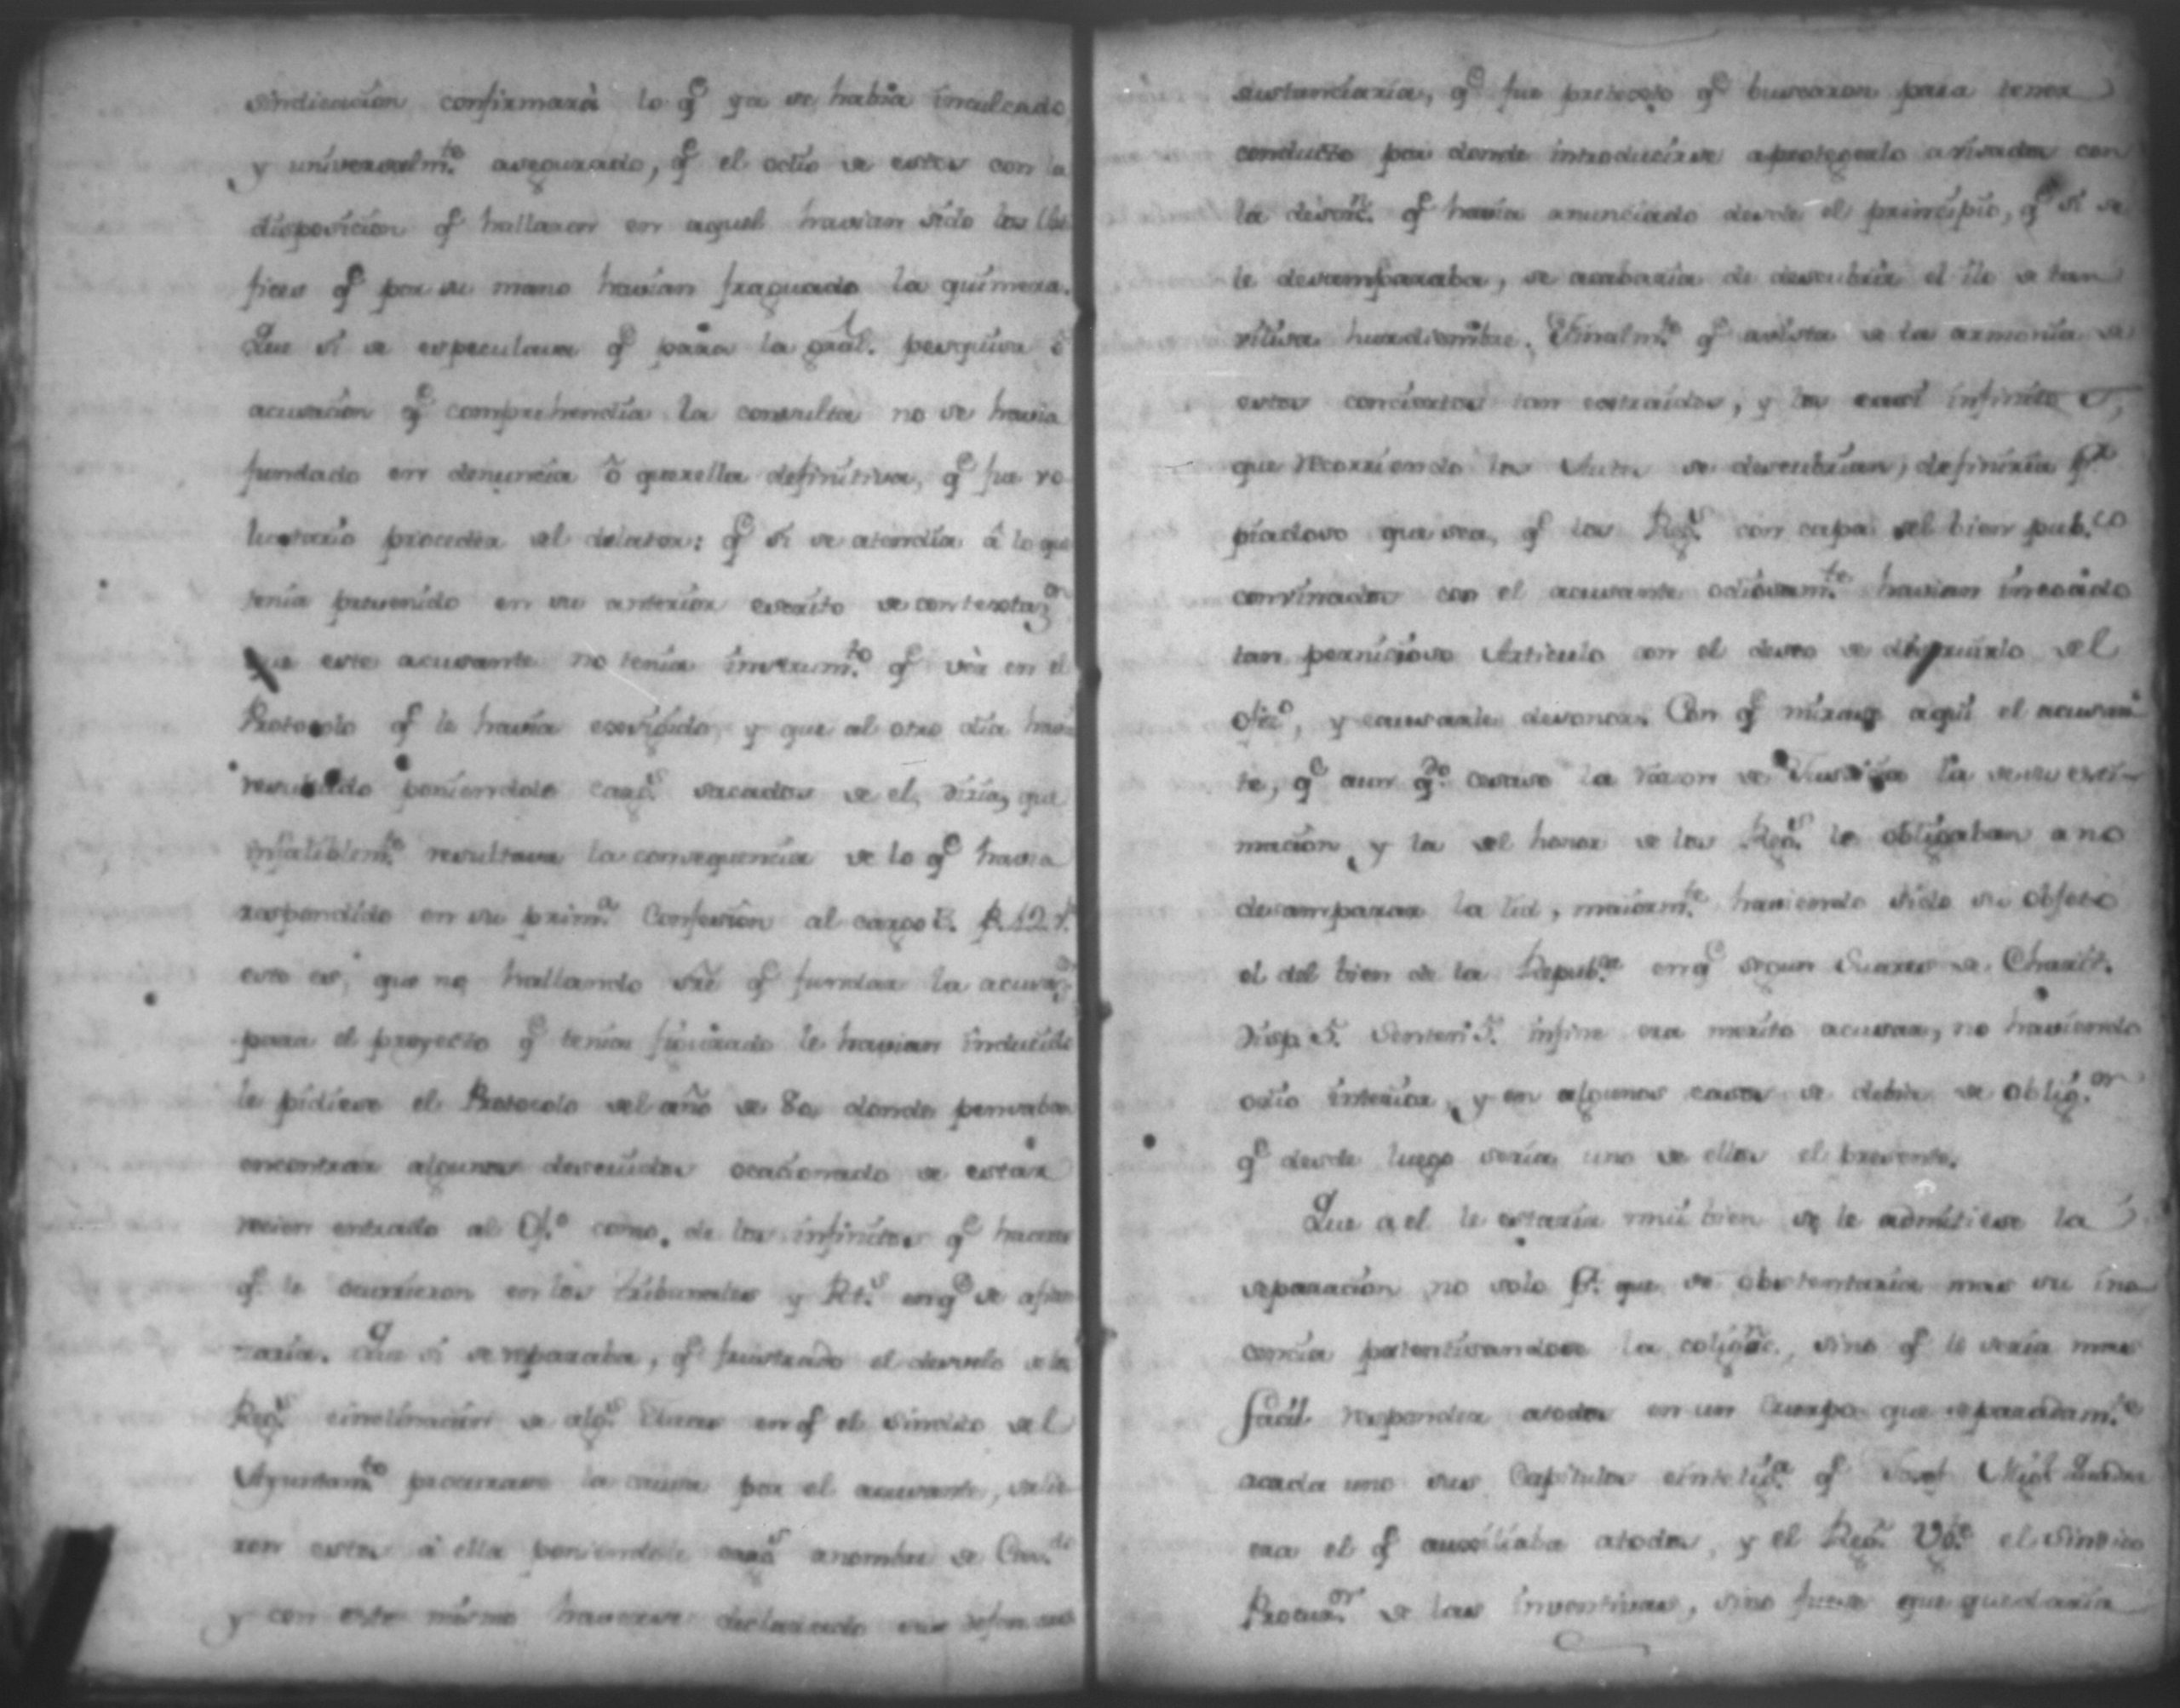 sindicacion confirmarà lo q.e ya se habia inculcado
y universalm.te asegurado, q.e el odio de estos con la
disposicion q.e hallaron en aquel havian sido los
fices q.e por su mano havian fraguado la quimera.
Que si se especulava q.e para la gral. pesquisa ó
acusacion q.e comprehendia la consulta no se havia
fundado en denuncia ò querella definitiva, q.e fue vo
luntario proceder del delator: q.e si se atendia â lo que
tenia prevenido en su anterior escrito de contestaz.on
que este acusante no tenia instrum.to q.e vèr en el
Protocolo q.e le havia exsivido, y que al otro dia havia
resultado poniendole carg.s sacados de el, diria, que
infaliblem.te resultava la consequencia de lo q.e havia
respondido en su prim.a Confesion al cargo 6. f. 12. v.ta
esto es, que no hallando sre q.e fundar la acusaz.on
para el proyecto q.e tenia figurado le havian inducido
le pidiese el Protocolo del año de 80, donde pensaban
encontrar algunos descuidos ocacionado de estar
recien entrado al Of.o como de los infinitos q.e hacer
q.e le ocurrieron en los tribunales y Rl.s en q.e se afian
zaria. Que si se reparaba, q.e frustrado el desvelo de los
Reg.s einclinacion de alg.s Jueces en q.e el Sindico del
Ayuntam.to procurase la causa por el acusante, salie
ron estos à ella poniendole carg.s anombre de Ciu.d
y con este mismo haverse declarado sus
sustanciaria, q.e fue pretecsto q.e buscaron para tener
conducto por donde introducirse aprotegerlo avisados con
la q.e havia anunciado desde el principio, q.e si se
le desamparaba, se acabaria de descubrir el ilo de tan
vilisa hurdiembre. Finalm.te q.e avista de la armonia de
estos conciertos tan estraidos, y los casi infinitos
que recorriendo los Autos se descubrian, definiria p.r
piadoso que sea, q.e los Reg.s con capa del bien pub.co
convinados con el acusante odiosam.te havian incoàdo
tan pernicioso Articulo con el deseo de destruirlo del
ofiz.o, y causarle desonor. Con q.e mirase aqui el acusan
te, q.e aun q.do cesase la razon de Justicia la de su esti-
macion, y la del honor de los Reg.s le obligaban a no
desamparar la lid, maiorm.te haviendo sido su obgeto
el del bien de la Repub.ca en q.e segun Suares de Charit.
disp 5. Senten 5. infine era merito acusar, no haviendo
odio interior, y en algunos casos se debia de oblig.on
q.e desde luego seria uno de ellos el presente.
Que a el le estaria mui bien se le admitiese la
separacion no solo p.r que se obstentaria mas su ino
cencia patentisandose la coligac.n, sino q.e le seria mas
facil responder atodos en un Cuerpo que separadam.te
acada uno sus Capitulos q.e Josef Mig.l
era el q.e auxiliaba atodos, y el Reg.r el Sindico
Procur.or de las inventivas, sino fuese que quedaria